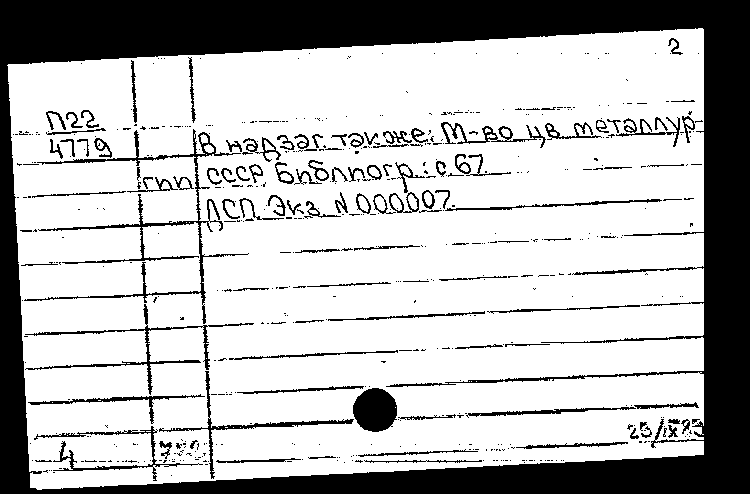 2
П22
4779
В надзаг. также: М-во цв металлур
гпп СССР. Библиогр.: с 67
ДСП. Экз. N000007.
4
25/IX85